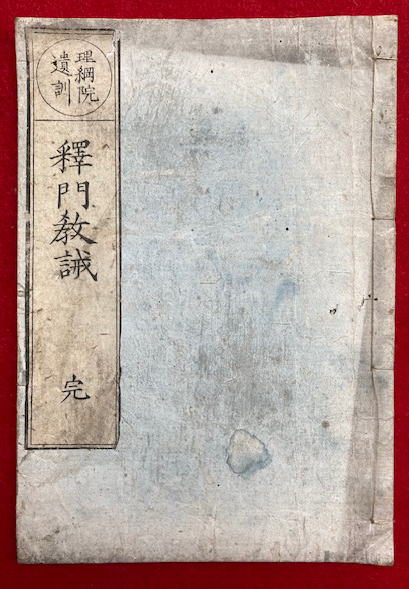 理綱院
遺訓
釋門教誡
完